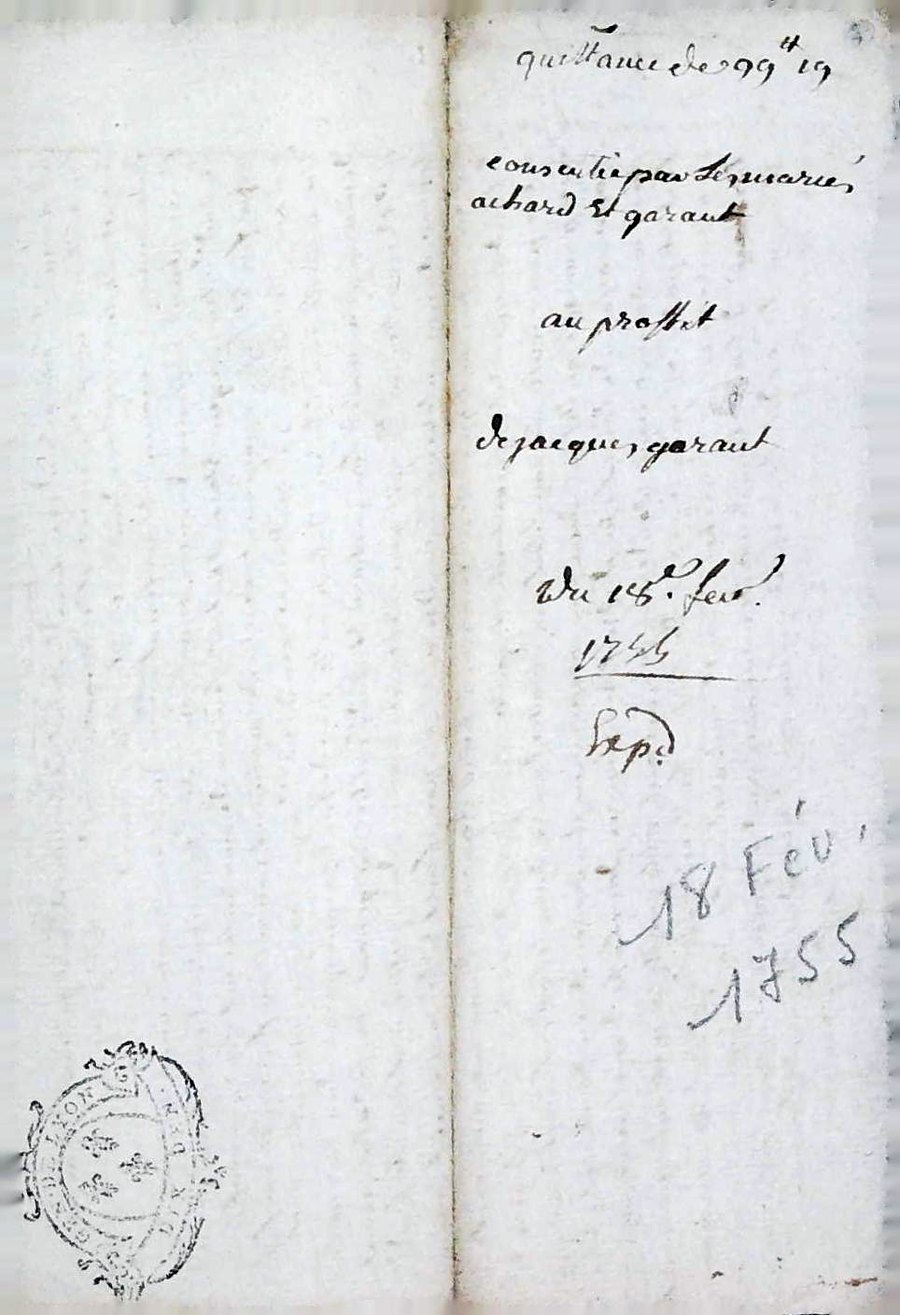 quittance de 99ᵗᵗ 19
consentie par Les mariés
achard Et garant
au proffit
de jacques garant
Du 18ᵉ. fevʳ.
1755
Exp.ᵈ
18 Fév.
1755
GEN. DE LYON